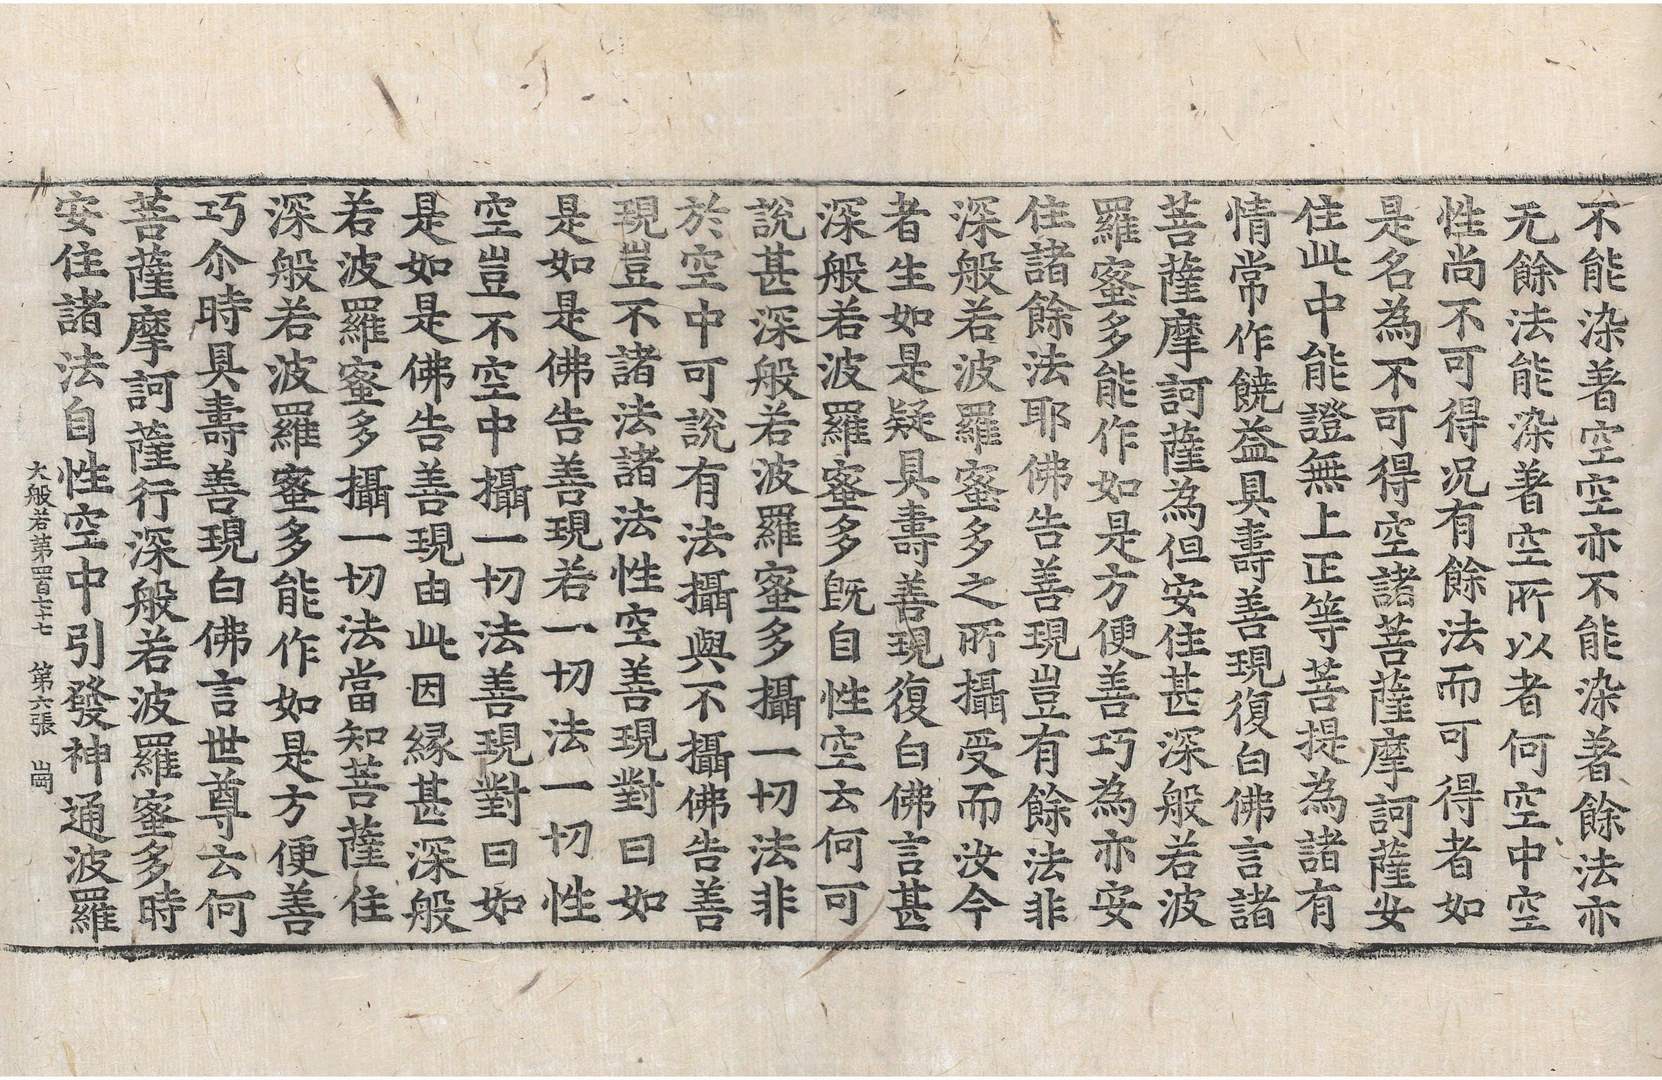 不能染著空空亦不能染著餘法亦
无餘法能染著空所以者何空中空
性尚不可得况有餘法而可得者如
是名為不可得空諸菩薩摩訶薩安
住此中能證無上正等菩提為諸有
情常作饒益具壽善現復白佛言諸
菩薩摩訶薩為但安住甚深般若波
羅蜜多能作如是方便善巧為亦安
住諸餘法耶佛告善現豈有餘法非
深般若波羅蜜多之所攝受而汝今
者生如是疑具壽善現復白佛言甚
深般若波羅蜜多旣自性空云何可
說甚深般若波羅蜜多攝一切法非
於空中可說有法攝與不攝佛告善
現豈不諸法諸法性空善現對曰如
是如是佛告善現若一切法一切性
空豈不空中攝一切法善現對曰如
是如是佛告善現由此因縁甚深般
若波羅蜜多攝一切法當知菩薩住
深般若波羅蜜多能作如是方便善
巧尒時具壽善現白佛言世尊云何
菩薩摩訶薩行深般若波羅蜜多時
安住諸法自性空中引發神通波羅
大般若第四百六十七 第六張 崗